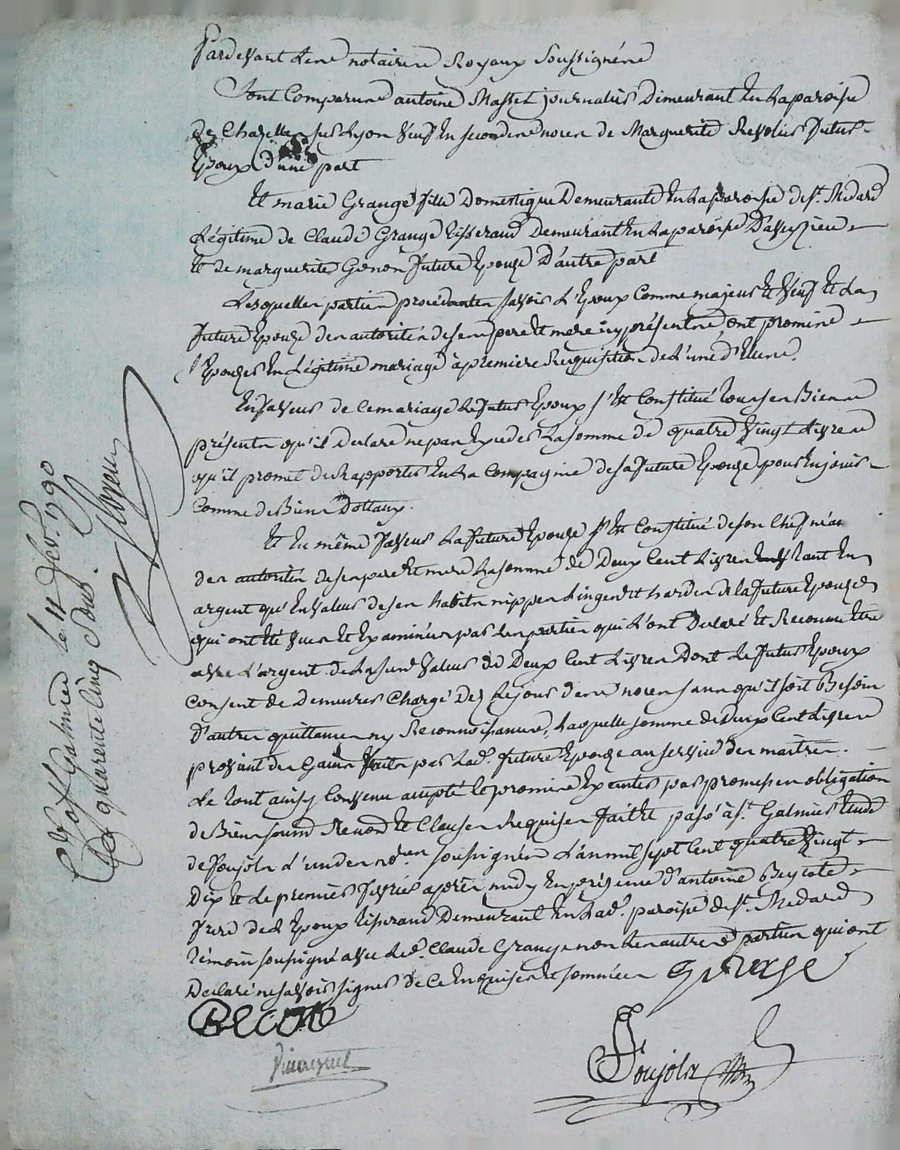 Pardevant Les notaires Royaux Soussignés
Sont Comparus antoine Masset journalier Demeurant En La paroisse
de Chazelles sur Lyon Veuf En secondes noces de Marguerite futur
Epoux d'une part
Et marie Grange fille Domestique Demeurante En La paroisse de st. Medard
Légitime de Claude Grange tisserand Demeurant En La paroisse D'aveyzieu
Et de marguerite Genon future Epouze D'autre part
Lesquelles parties procédantes savoir L'Epoux Comme majeur Et Veuf Et La
future Epouze des autorités de ses pere Et mere icy présents ont promis
s'Epouzer En Légitime mariage à premiere Requisition de L'une d'Elles.
En faveur de Ce mariage Le futur Epoux s'Est Constitué tous ses Biens
présents qu'il declare ne pas Exceder La somme de quatre Vingt Livres
qu'il promet de Rapporter En La Compagnie de sa future Epouze pour En jouir
Comme de Biens Dottaux.
Et En même faveur La future Epouze s'Est Constitué de son Chef
des autorités de ses pere Et mere La somme de Deux Cent Livres tant En
argent qu'En Valeur de ses habits nippes Linges Et hardes de la future Epouze
qui ont Eté Vues Et Examinées par Les parties qui L'ont Declaré Et Reconnu Etre
avec L'argent de La Valeur de Deux Cent Livres Dont Le futur Epoux
Consent de Demeurer Chargé Dez Le jour des noces sans qu'il soit Besoin
D'autres quittances ny Reconnoissances, Laquelle somme de Deux Cent Livres
provient des Gains faits par Lad. future Epouze au service des maitres.
Le tout ainsy Convenu accepté Et promis Executer par promesses obligation
de Biens soumd. Renond. Et Clauses Requises fait Et passé à st. Galmier Etude
de Soujola L'un des nores. soussignés L'an mil sept Cent quatre Vingt
Dix Et Le premier fevrier après midy En présence d'antoine
frere de L'Epoux tisserand Demeurant En Lad. paroisse de st. Medard
témoin soussigné avec Led. Claude Grange non Les autres parties qui ont
Declaré ne savoir signer de Ce Enquises Et sommées
Grange
Soujola
st Galmier le 11 fev. 1790
quarente cinq sous.